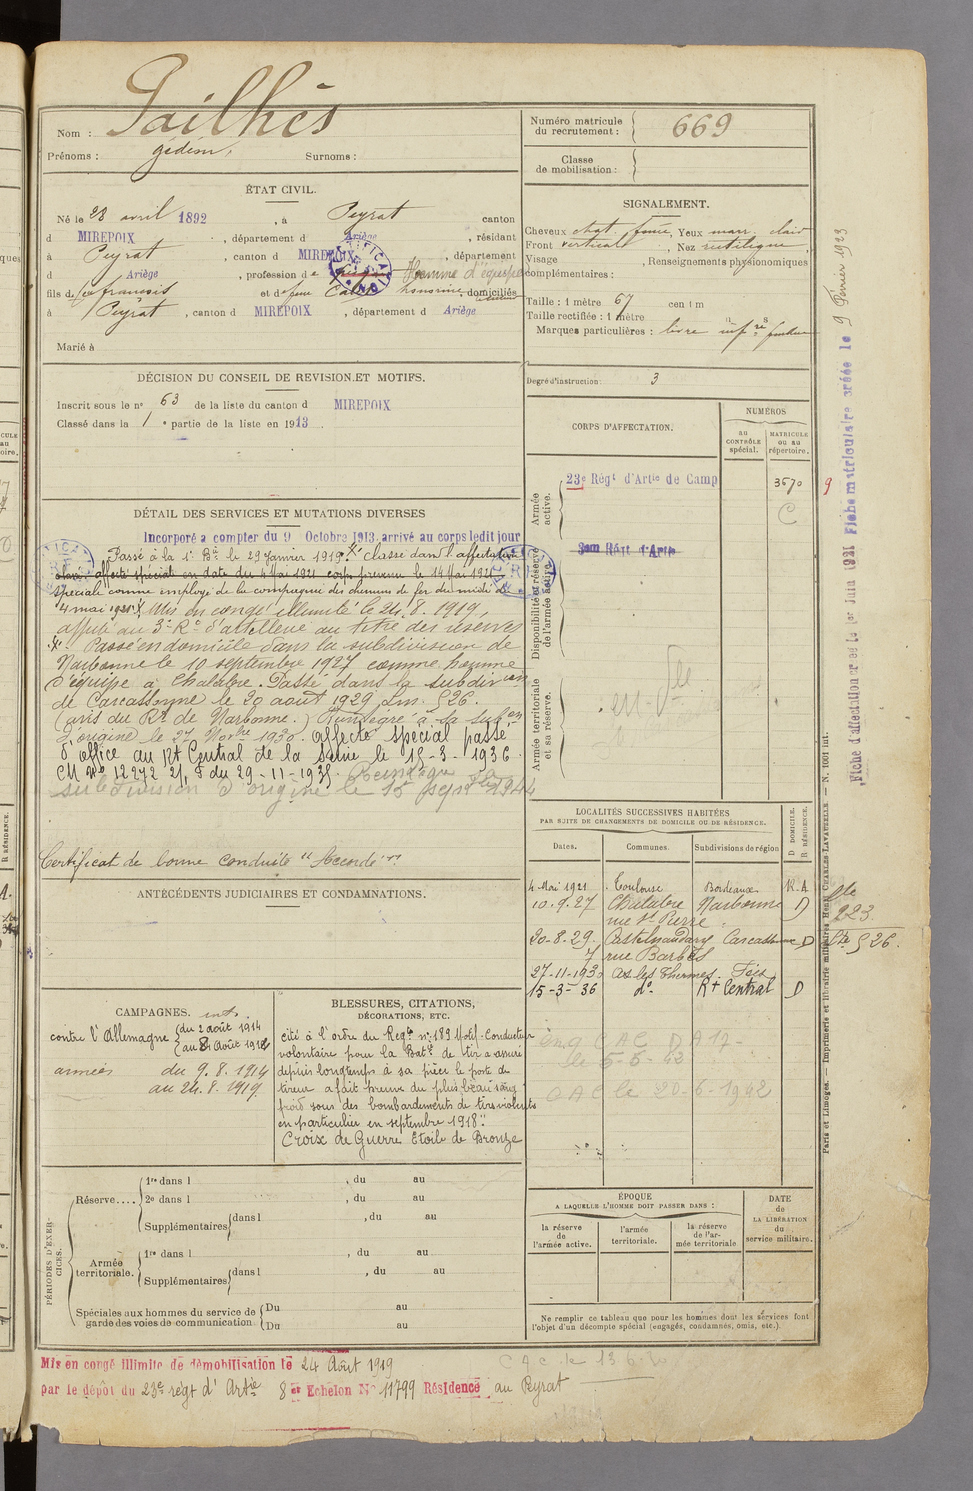 Nom : Pailhès
Prénoms : gédéon, Surnoms :
Numéro matricule du recrutement : 669
Classe de mobilisation :
ÉTAT CIVIL.
Né le 23 avril 1892, à Peyrat canton
d MIREPOIX, département d Ariège, résidant
à Peyrat, canton d MIREPOIX, département
d Ariège, profession de Homme d'équipe
fils de feu francois et de feue honorine domiciliés
à Peyrat, canton d MIREPOIX, département d Ariège
Marié à
SIGNALEMENT.
Cheveux chat. foncé, Yeux marr. clair
Front vertical, Nez rectiligne,
Visage , Renseignements physionomiques
complémentaires :
Taille : 1 mètre 67 centim
Taille rectifiée : 1 mètre
Marques particulières : levre infre
Degré d'instruction : 3
DÉCISION DU CONSEIL DE REVISION ET MOTIFS.
Inscrit sous le n° 63 de la liste du canton d MIREPOIX
Classé dans la 1 e partie de la liste en 1913.
CORPS D'AFFECTATION.
NUMÉROS
au CONTRÔLE spécial.
MATRICULE ou au répertoire.
Armée active.
23e Régt d'Artie de Camp 3670 9
C
Disponibilité et réserve de l'armée active.
3em Régt d'Artie
Armée territoriale et sa réserve.
DÉTAIL DES SERVICES ET MUTATIONS DIVERSES
Incorporé a compter du 9 Octobre 1913, arrivé au corps ledit jour
Passé à la 1e Bie le 29 Janvier 1919. Classé dans l'affectation
affecté spécial en date du 4 Mai 1921 corps prévenu le 14 Mai 1921
spéciale comme employé de la compagnie des chemins de fer du midi du
4 mai 1921. Mis en congé illimité le 24.8.1919,
affecté au 3e Rt d'artillerie au titre des réserves
Passé en domicile dans la subdivision de
Narbonne le 10 septembre 1927 comme homme
d'équipe à Chalabre. Passé dans la subdivon
de Carcassonne le 20 août 1929 Lm. 526.
(avis du Rt de Narbonne.) Réintégré à la subon
d'origine le 27 Novbre 1930. affecté spécial passé
d'office au Rt Central de la Seine le 15-3-1936
CM No 12272 2/1 du 29-11-1935. Réintégré
subdivision d'origine le 15 sept 1944
Certificat de bonne conduite "Accordé"
ANTÉCÉDENTS JUDICIAIRES ET CONDAMNATIONS.
LOCALITÉS SUCCESSIVES HABITÉES
PAR SUITE DE CHANGEMENTS DE DOMICILE OU DE RÉSIDENCE.
Dates. Communes. Subdivisions de région D DOMICILE. R RÉSIDENCE.
4 Mai 1921 Toulouse Bordeaux R.A
10.9.27 Chalabre Narbonne D
rue St Pierre
20-8-29. Castelnaudary Carcassonne D
7 rue Barbès
27-11-1930 Ax les Thermes. Foix
15-3-36 do. Rt Central D
223.
526.
CAC DA 17-
le 5-5-42
CAC le 20-6-1942
CAMPAGNES.
contre l'Allemagne du 2 août 1914
au 8 Août 1914
armées du 9.8.1914
au 24.8.1919.
BLESSURES, CITATIONS,
DÉCORATIONS, ETC.
cité à l'ordre du Regt n° 189 Motif. Conducteur
volontaire pour la Batie de tir a assuré
depuis longtemps à sa pièce le poste de
tireur a fait preuve du plus beau sang
froid sous des bombardements de tirs violents
en particulier en septembre 1918"
Croix de Guerre Etoile de Bronze
PÉRIODES D'EXERCICES.
Réserve.... 1re dans l , du au
2e dans l , du au
Supplémentaires dans l , du au
Armée territoriale. 1re dans l , du au
Supplémentaires dans l , du au
Spéciales aux hommes du service de garde des voies de communication Du au
Du au
ÉPOQUE
A LAQUELLE L'HOMME DOIT PASSER DANS :
la réserve de l'armée active.
l'armée territoriale.
la réserve de l'armée territoriale
DATE de LA LIBÉRATION du service militaire.
Ne remplir ce tableau que pour les hommes dont les services font
l'objet d'un décompte spécial (engagés, condamnés, omis, etc.).
Mis en congé illimité de démobilisation le 24 Août 1919
par le dépôt du 23e règt d'Artie 8er Echelon No 11799 Résidence au Peyrat
Fiche d'affectation créée le 1er Juin 1921 Fiche matriculaire créée le 9 Février 1923
Paris et Limoges. — Imprimerie et librairie militaires Henri CHARLES-LAVAUZELLE. — N. 1001 int.